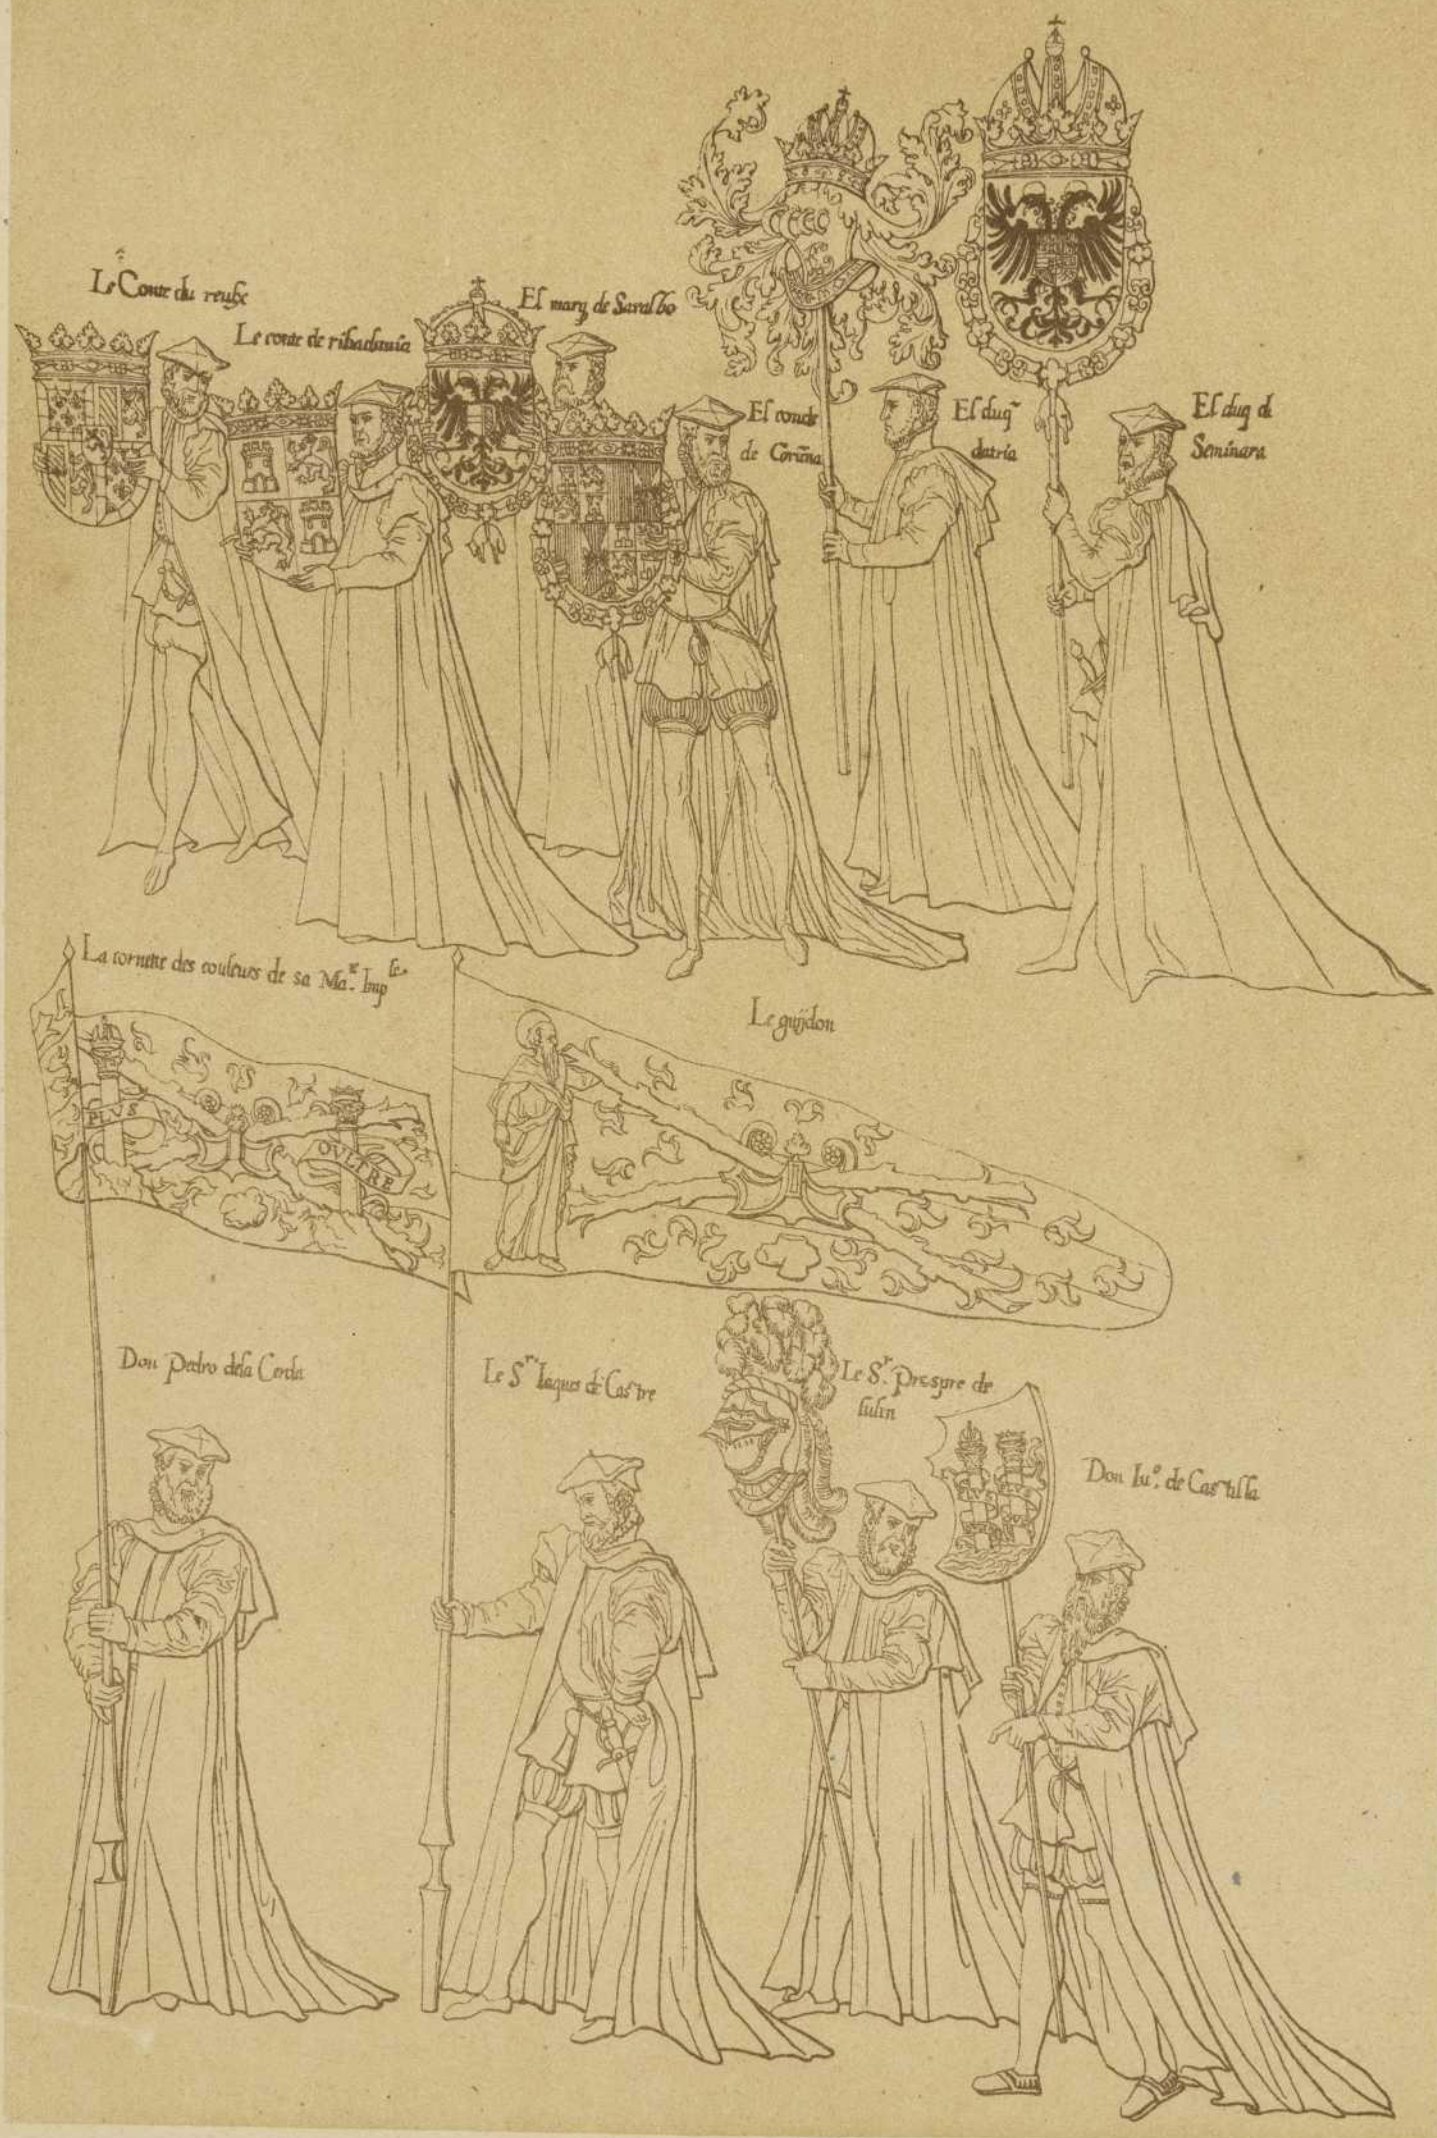 Le Conte du reulx
Le conte de ribadauia
El marq de Saralbo
El conde
de Coruña
El duq̃
datria
El duq di
Seminara
La cornette des couleurs de sa Ma.te Imple.
PLVS
OVLTRE
Le guijdon
Don Pedro dela Cerda
Le Sr Iaques de Castre
Le Sr. Prospre de
lulin
PLVS
VLTRE
Don Iuo. de Castilla